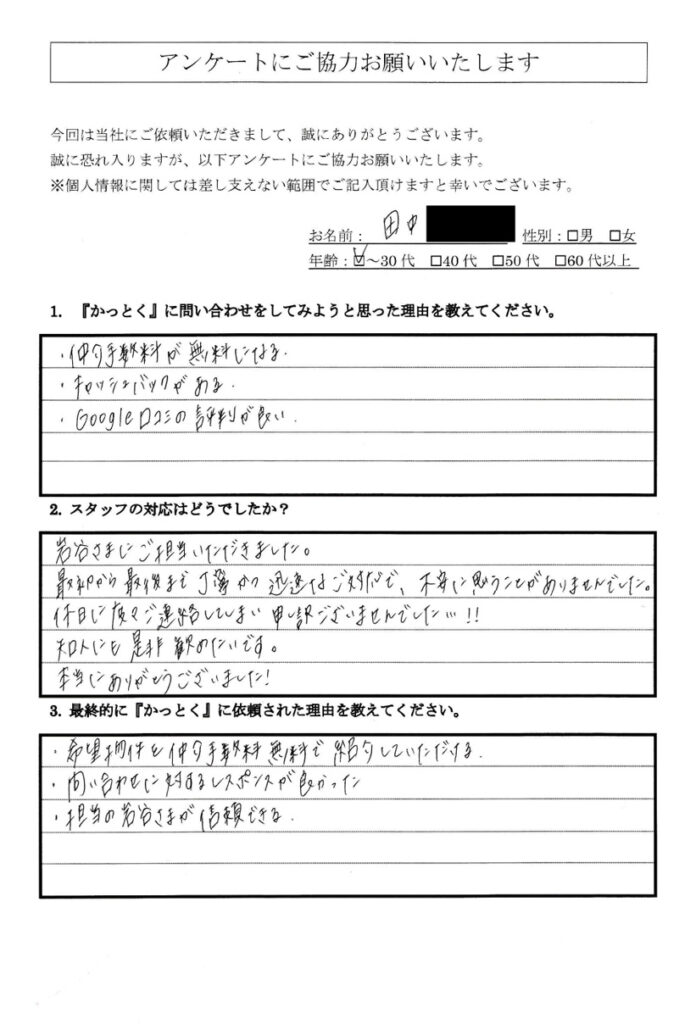 アンケートにご協力お願いいたします
今回は当社にご依頼いただきまして、誠にありがとうございます。
誠に恐れ入りますが、以下アンケートにご協力お願いいたします。
※個人情報に関しては差し支えない範囲でご記入頂けますと幸いでございます。
お名前： 田中 性別：□男 □女
年齢：☑～30代 □40代 □50代 □60代以上
1. 『かっとく』に問い合わせをしてみようと思った理由を教えてください。
・仲介手数料が無料になる.
・キャッシュバックがある.
・Google口コミの評判が良い.
2. スタッフの対応はどうでしたか？
岩谷さまにご担当いただきました。
最初から最後まで丁寧かつ迅速なご対応で、不安に思うことがありませんでした。
休日に度々ご連絡してしまい申し訳ございませんでした…!!
知人にも是非勧めたいです。
本当にありがとうございました!
3. 最終的に『かっとく』に依頼された理由を教えてください。
・希望物件を仲介手数料無料で紹介していただける.
・問い合わせに対するレスポンスが良かった
・担当の岩谷さまが信頼できる.